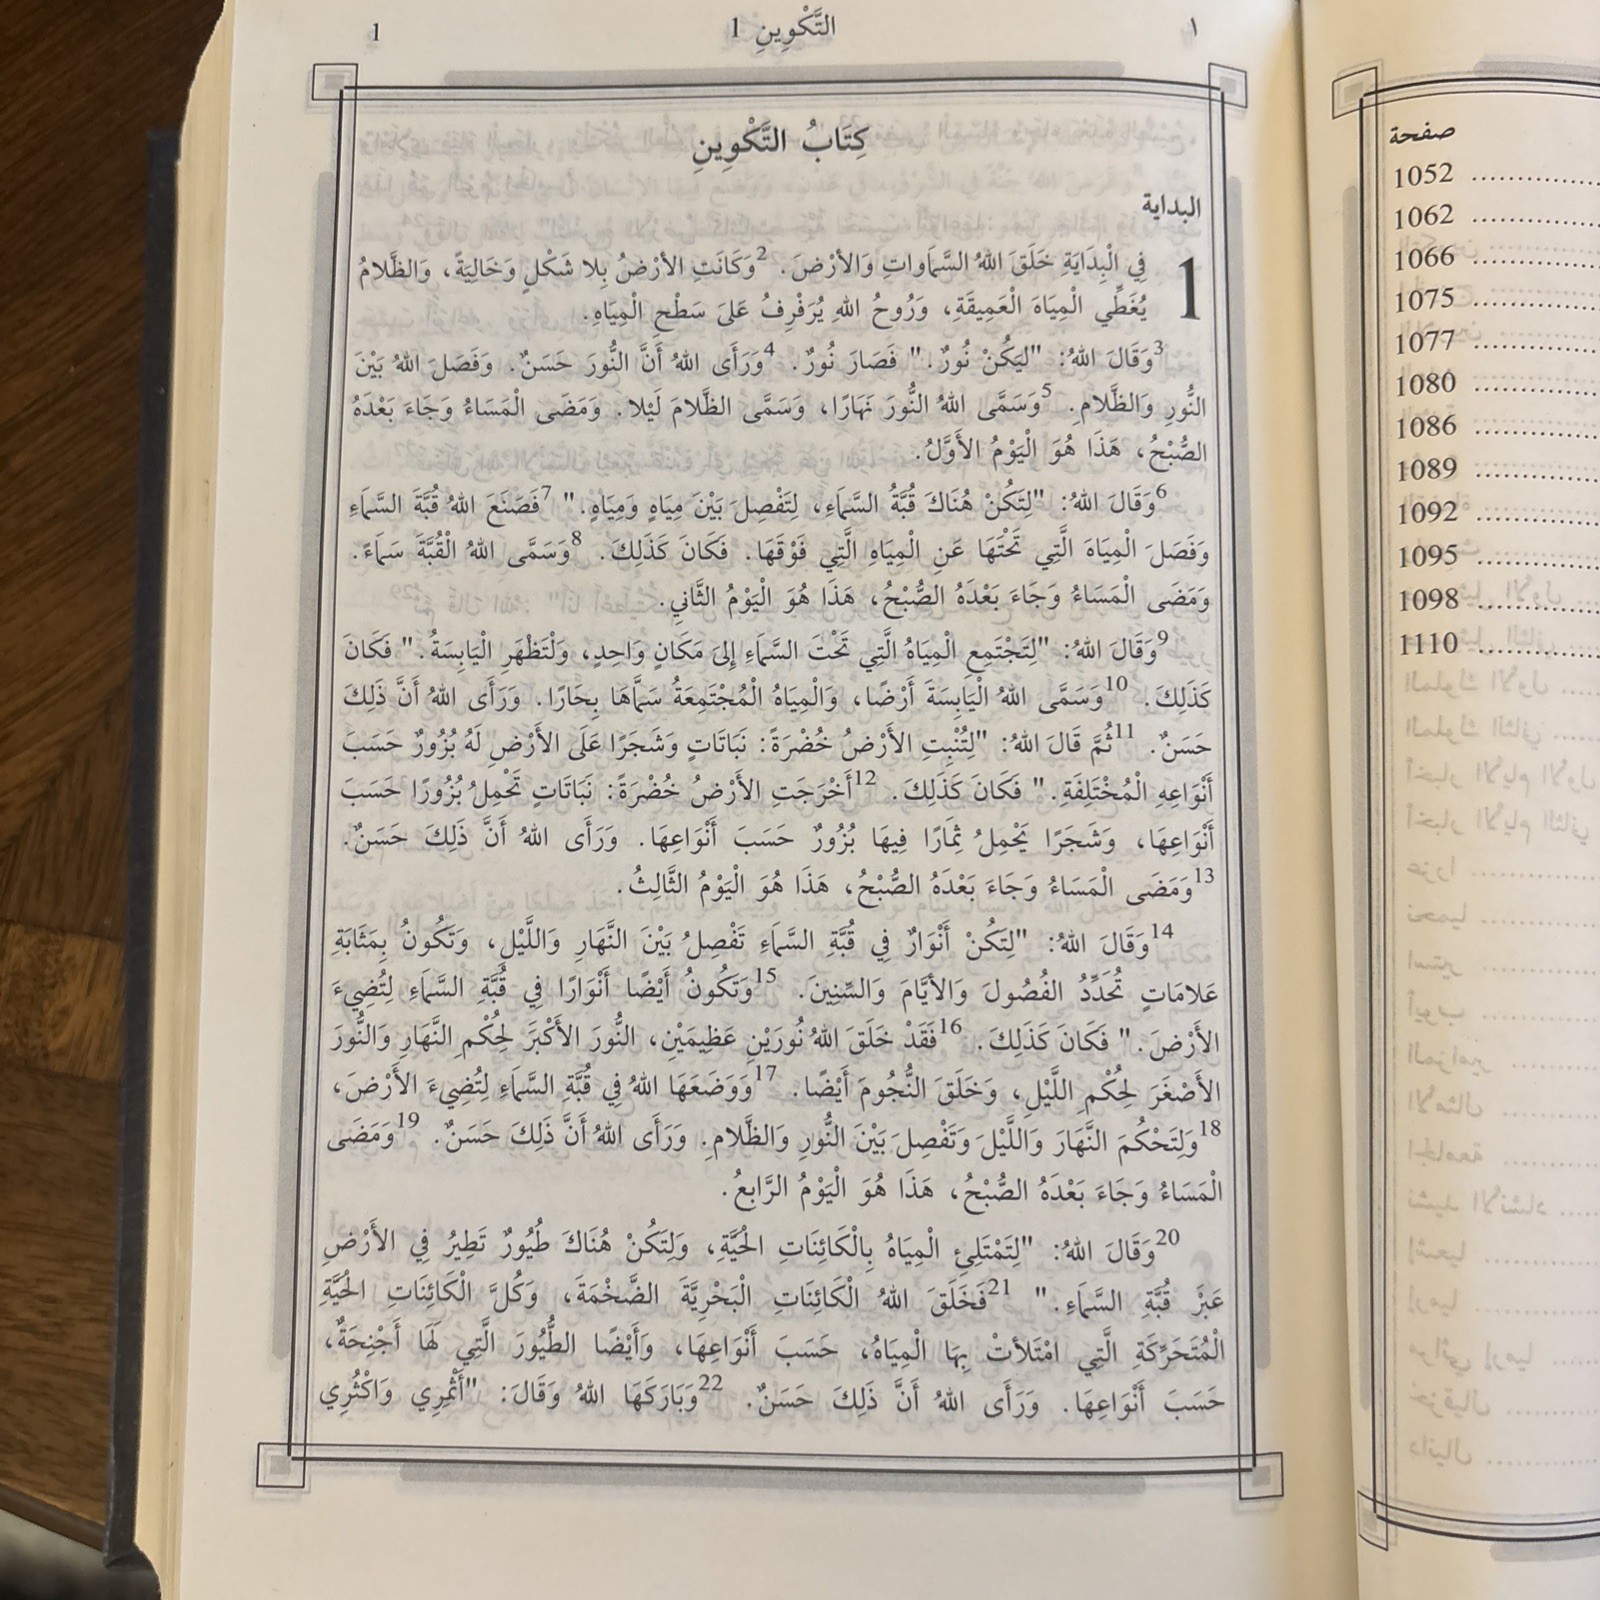 1 التَّكْوِينِ 1 ١
كِتَابُ التَّكْوِينِ
البداية
1 فِي الْبِدَايَةِ خَلَقَ اللهُ السَّمَاوَاتِ وَالأَرْضَ. 2وَكَانَتِ الأَرْضُ بِلا شَكْلٍ وَخَالِيَةً، وَالظَّلامُ
يُغَطِّي الْمِيَاهَ الْعَمِيقَةِ، وَرُوحُ اللهِ يُرَفْرِفُ عَلَى سَطْحِ الْمِيَاهِ.
3وَقَالَ اللهُ: "لِيَكُنْ نُورٌ." فَصَارَ نُورٌ. 4وَرَأَى اللهُ أَنَّ النُّورَ حَسَنٌ. وَفَصَلَ اللهُ بَيْنَ
النُّورِ وَالظَّلامِ. 5وَسَمَّى اللهُ النُّورَ نَهَارًا، وَسَمَّى الظَّلامَ لَيْلا. وَمَضَى الْمَسَاءُ وَجَاءَ بَعْدَهُ
الصُّبْحُ، هَذَا هُوَ الْيَوْمُ الأَوَّلُ.
6وَقَالَ اللهُ: "لِتَكُنْ هُنَاكَ قُبَّةُ السَّمَاءِ، لِتَفْصِلَ بَيْنَ مِيَاهٍ وَمِيَاهٍ." 7فَصَنَعَ اللهُ قُبَّةَ السَّمَاءِ
وَفَصَلَ الْمِيَاهَ الَّتِي تَحْتَهَا عَنِ الْمِيَاهِ الَّتِي فَوْقَهَا. فَكَانَ كَذَلِكَ. 8وَسَمَّى اللهُ الْقُبَّةَ سَمَاءً.
وَمَضَى الْمَسَاءُ وَجَاءَ بَعْدَهُ الصُّبْحُ، هَذَا هُوَ الْيَوْمُ الثَّانِي.
9وَقَالَ اللهُ: "لِتَجْتَمِعِ الْمِيَاهُ الَّتِي تَحْتَ السَّمَاءِ إِلَى مَكَانٍ وَاحِدٍ، وَلْتَظْهَرِ الْيَابِسَةُ." فَكَانَ
كَذَلِكَ. 10وَسَمَّى اللهُ الْيَابِسَةَ أَرْضًا، وَالْمِيَاهُ الْمُجْتَمِعَةُ سَمَّاهَا بِحَارًا. وَرَأَى اللهُ أَنَّ ذَلِكَ
حَسَنٌ. 11ثُمَّ قَالَ اللهُ: "لِتُنْبِتِ الأَرْضُ خُضْرَةً: نَبَاتَاتٍ وَشَجَرًا عَلَى الأَرْضِ لَهُ بُزُورٌ حَسَبَ
أَنْوَاعِهِ الْمُخْتَلِفَةِ." فَكَانَ كَذَلِكَ. 12أَخْرَجَتِ الأَرْضُ خُضْرَةً: نَبَاتَاتٍ تَحْمِلُ بُزُورًا حَسَبَ
أَنْوَاعِهَا، وَشَجَرًا يَحْمِلُ ثِمَارًا فِيهَا بُزُورٌ حَسَبَ أَنْوَاعِهَا. وَرَأَى اللهُ أَنَّ ذَلِكَ حَسَنٌ.
13وَمَضَى الْمَسَاءُ وَجَاءَ بَعْدَهُ الصُّبْحُ، هَذَا هُوَ الْيَوْمُ الثَّالِثُ.
14وَقَالَ اللهُ: "لِتَكُنْ أَنْوَارٌ فِي قُبَّةِ السَّمَاءِ تَفْصِلُ بَيْنَ النَّهَارِ وَاللَّيْلِ، وَتَكُونُ بِمَثَابَةِ
عَلامَاتٍ تُحَدِّدُ الفُصُولَ وَالأَيَّامَ وَالسِّنِينَ. 15وَتَكُونُ أَيْضًا أَنْوَارًا فِي قُبَّةِ السَّمَاءِ لِتُضِيءَ
الأَرْضَ." فَكَانَ كَذَلِكَ. 16فَقَدْ خَلَقَ اللهُ نُورَيْنِ عَظِيمَيْنِ، النُّورَ الأَكْبَرَ لِحُكْمِ النَّهَارِ وَالنُّورَ
الأَصْغَرَ لِحُكْمِ اللَّيْلِ، وَخَلَقَ النُّجُومَ أَيْضًا. 17وَوَضَعَهَا اللهُ فِي قُبَّةِ السَّمَاءِ لِتُضِيءَ الأَرْضَ،
18وَلِتَحْكُمَ النَّهَارَ وَاللَّيْلَ وَتَفْصِلَ بَيْنَ النُّورِ وَالظَّلامِ. وَرَأَى اللهُ أَنَّ ذَلِكَ حَسَنٌ. 19وَمَضَى
الْمَسَاءُ وَجَاءَ بَعْدَهُ الصُّبْحُ، هَذَا هُوَ الْيَوْمُ الرَّابِعُ.
20وَقَالَ اللهُ: "لِتَمْتَلِئِ الْمِيَاهُ بِالْكَائِنَاتِ الْحَيَّةِ، وَلِتَكُنْ هُنَاكَ طُيُورٌ تَطِيرُ فِي الأَرْضِ
عَبْرَ قُبَّةِ السَّمَاءِ." 21فَخَلَقَ اللهُ الْكَائِنَاتِ الْبَحْرِيَّةَ الضَّخْمَةَ، وَكُلَّ الْكَائِنَاتِ الْحَيَّةِ
الْمُتَحَرِّكَةِ الَّتِي امْتَلأَتْ بِهَا الْمِيَاهُ، حَسَبَ أَنْوَاعِهَا، وَأَيْضًا الطُّيُورَ الَّتِي لَهَا أَجْنِحَةٌ،
حَسَبَ أَنْوَاعِهَا. وَرَأَى اللهُ أَنَّ ذَلِكَ حَسَنٌ. 22وَبَارَكَهَا اللهُ وَقَالَ: "أَثْمِرِي وَاكْثُرِي
صفحة
1052
1062
1066
1075
1077
1080
1086
1089
1092
1095
1098
1110